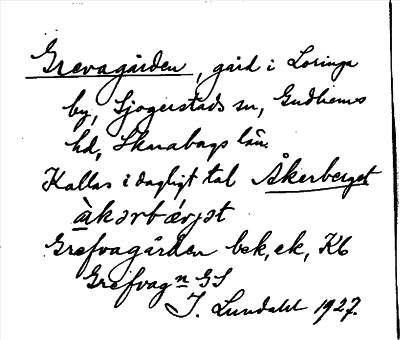 Grevagården, gård i Loringa
by, Sjogerstads sn, Gudhems
hd, Skarabogs län.
Kallas i dagligt tal Åkerberget
àkərbǽrjət
Grefvagården bek, ek, Kb
Grefvagn GS
J. Lundahl 1927.